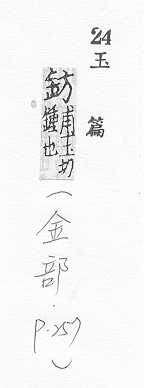 24
玉篇
鈁
甫王切
鍾也
(金部. p.257)